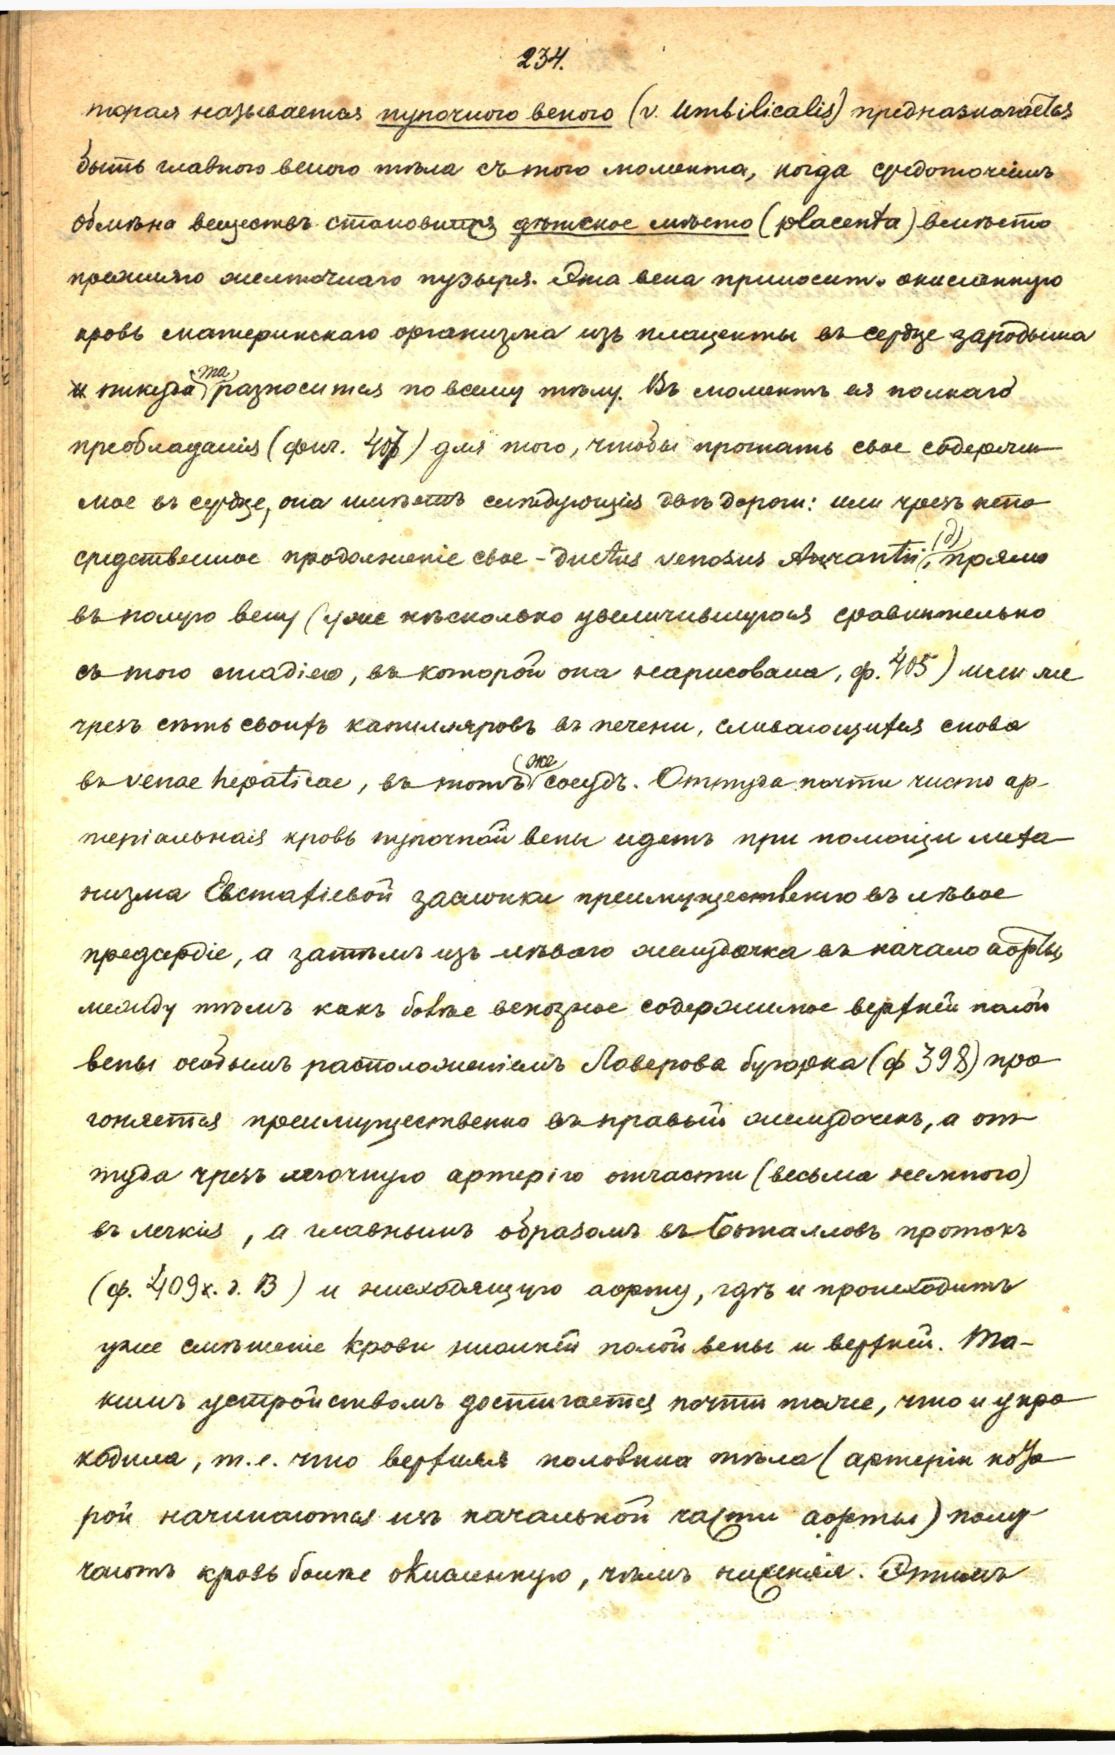 234.
торая называется пупочною веною (v. Umbilicalis) предназначается
быть главною веною тѣла съ того момента, когда средоточіемъ
обмѣна веществъ становится дѣтское мѣсто (placenta) вмѣсто
прежняго желточнаго пузыря. Эта вена приноситъ окисленную
кровь материнскаго организма изъ плаценты въ сердце зародыша
и никуда та разносится по всему тѣлу. Въ моментъ ея полнаго
преобладанія (фиг. 407) для того, чтобы прогнать свое содержи
мое въ сердце, она имѣетъ слѣдующія двѣ дороги: или чрезъ непо
средственное продолженіе свое - ductus venosus Aurantii (д) прямо
въ полую вену (уже нѣсколько увеличившуюся сравнительно
съ того стадіею, въ которой она нарисована, ф. 405) или же
чрезъ сѣть своихъ капилляровъ въ печени, сливающихся снова
въ venae hepaticae, въ тотъ же сосудъ. Оттуда почти чисто ар-
теріальная кровь пупочной вены идетъ при помощи меха
низма Евстахіевой заслонки преимущественно въ лѣвое
предсердіе, а затѣмъ изъ лѣваго желудочка въ начало аорты,
между тѣмъ какъ болѣе венозное содержимое верхней полой
вены особымъ расположеніемъ Ловерова бугорка (ф 398) про
гоняется преимущественно въ правый желудочекъ, а от
туда чрезъ легочную артерію отчасти (весьма немного)
въ легкія, а главнымъ образомъ въ Боталловъ протокъ
(ф. 409 х. д. B) и нисходящую аорту, гдѣ и происходитъ
уже смѣшеніе крови нижней полой вены и верхней. Та-
кимъ устройствомъ достигается почти тоже, что и у кро
кодила, т.е. что верхняя половина тѣла (артеріи кото
рой начинаются изъ начальной части аорты) полу
чаютъ кровь болѣе окисленную, чѣмъ нижняя. Этимъ